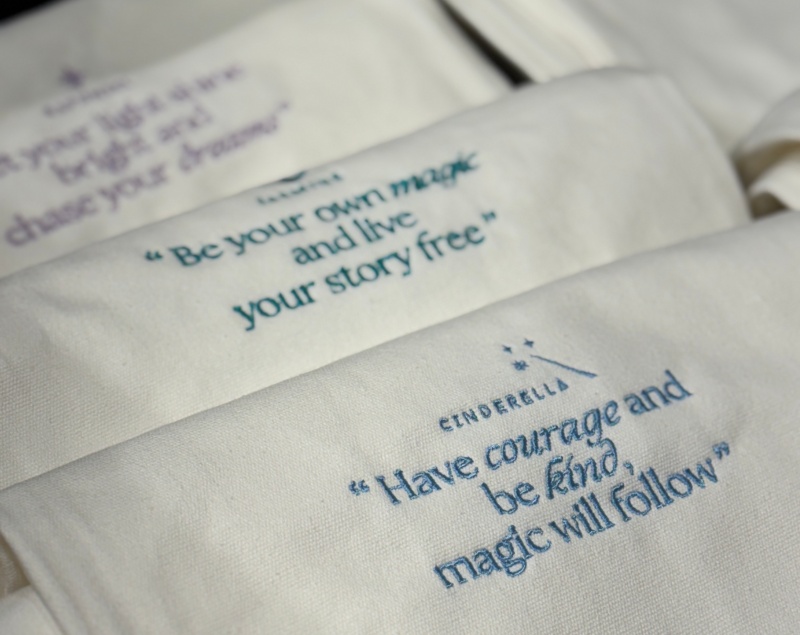 your light shine
bright and
chase your dreams”
JASMINE
“Be your own magic
and live
your story free”
CINDERELLA
“Have courage and
be kind,
magic will follow”